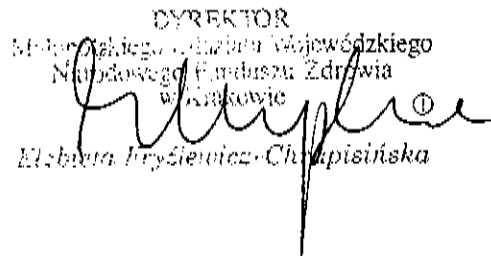 DYREKTOR
Małopolskiego Oddziału Wojewódzkiego
Narodowego Funduszu Zdrowia
w Krakowie
①
Elżbieta Fryźlewicz-Chrapisińska